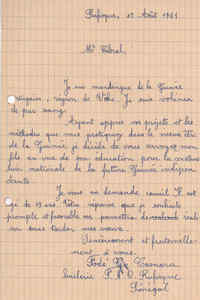 Rufisque, 17 Août 1961
Mr Cabral
Je suis mandingue de la Guinée
région de Je suis volontaire
de pur sang.
Ayant appris vos projets et les
méthodes que vous pratiquez dans le mouv
de la Guinée, je décide de vous envoyer mon
fils en vue de son éducation pour la même
lutte nationale de la future Guinée indépen
dante.
Je vous en demande conseil. Il est
âgé de 19 ans. Votre réponse que je souhaite
prompte et favorable me permettra de
sans tarder mes
Sincèrement et fraternelle-
ment, à vous.
Bodé Camara
Rufisque
Sénégal